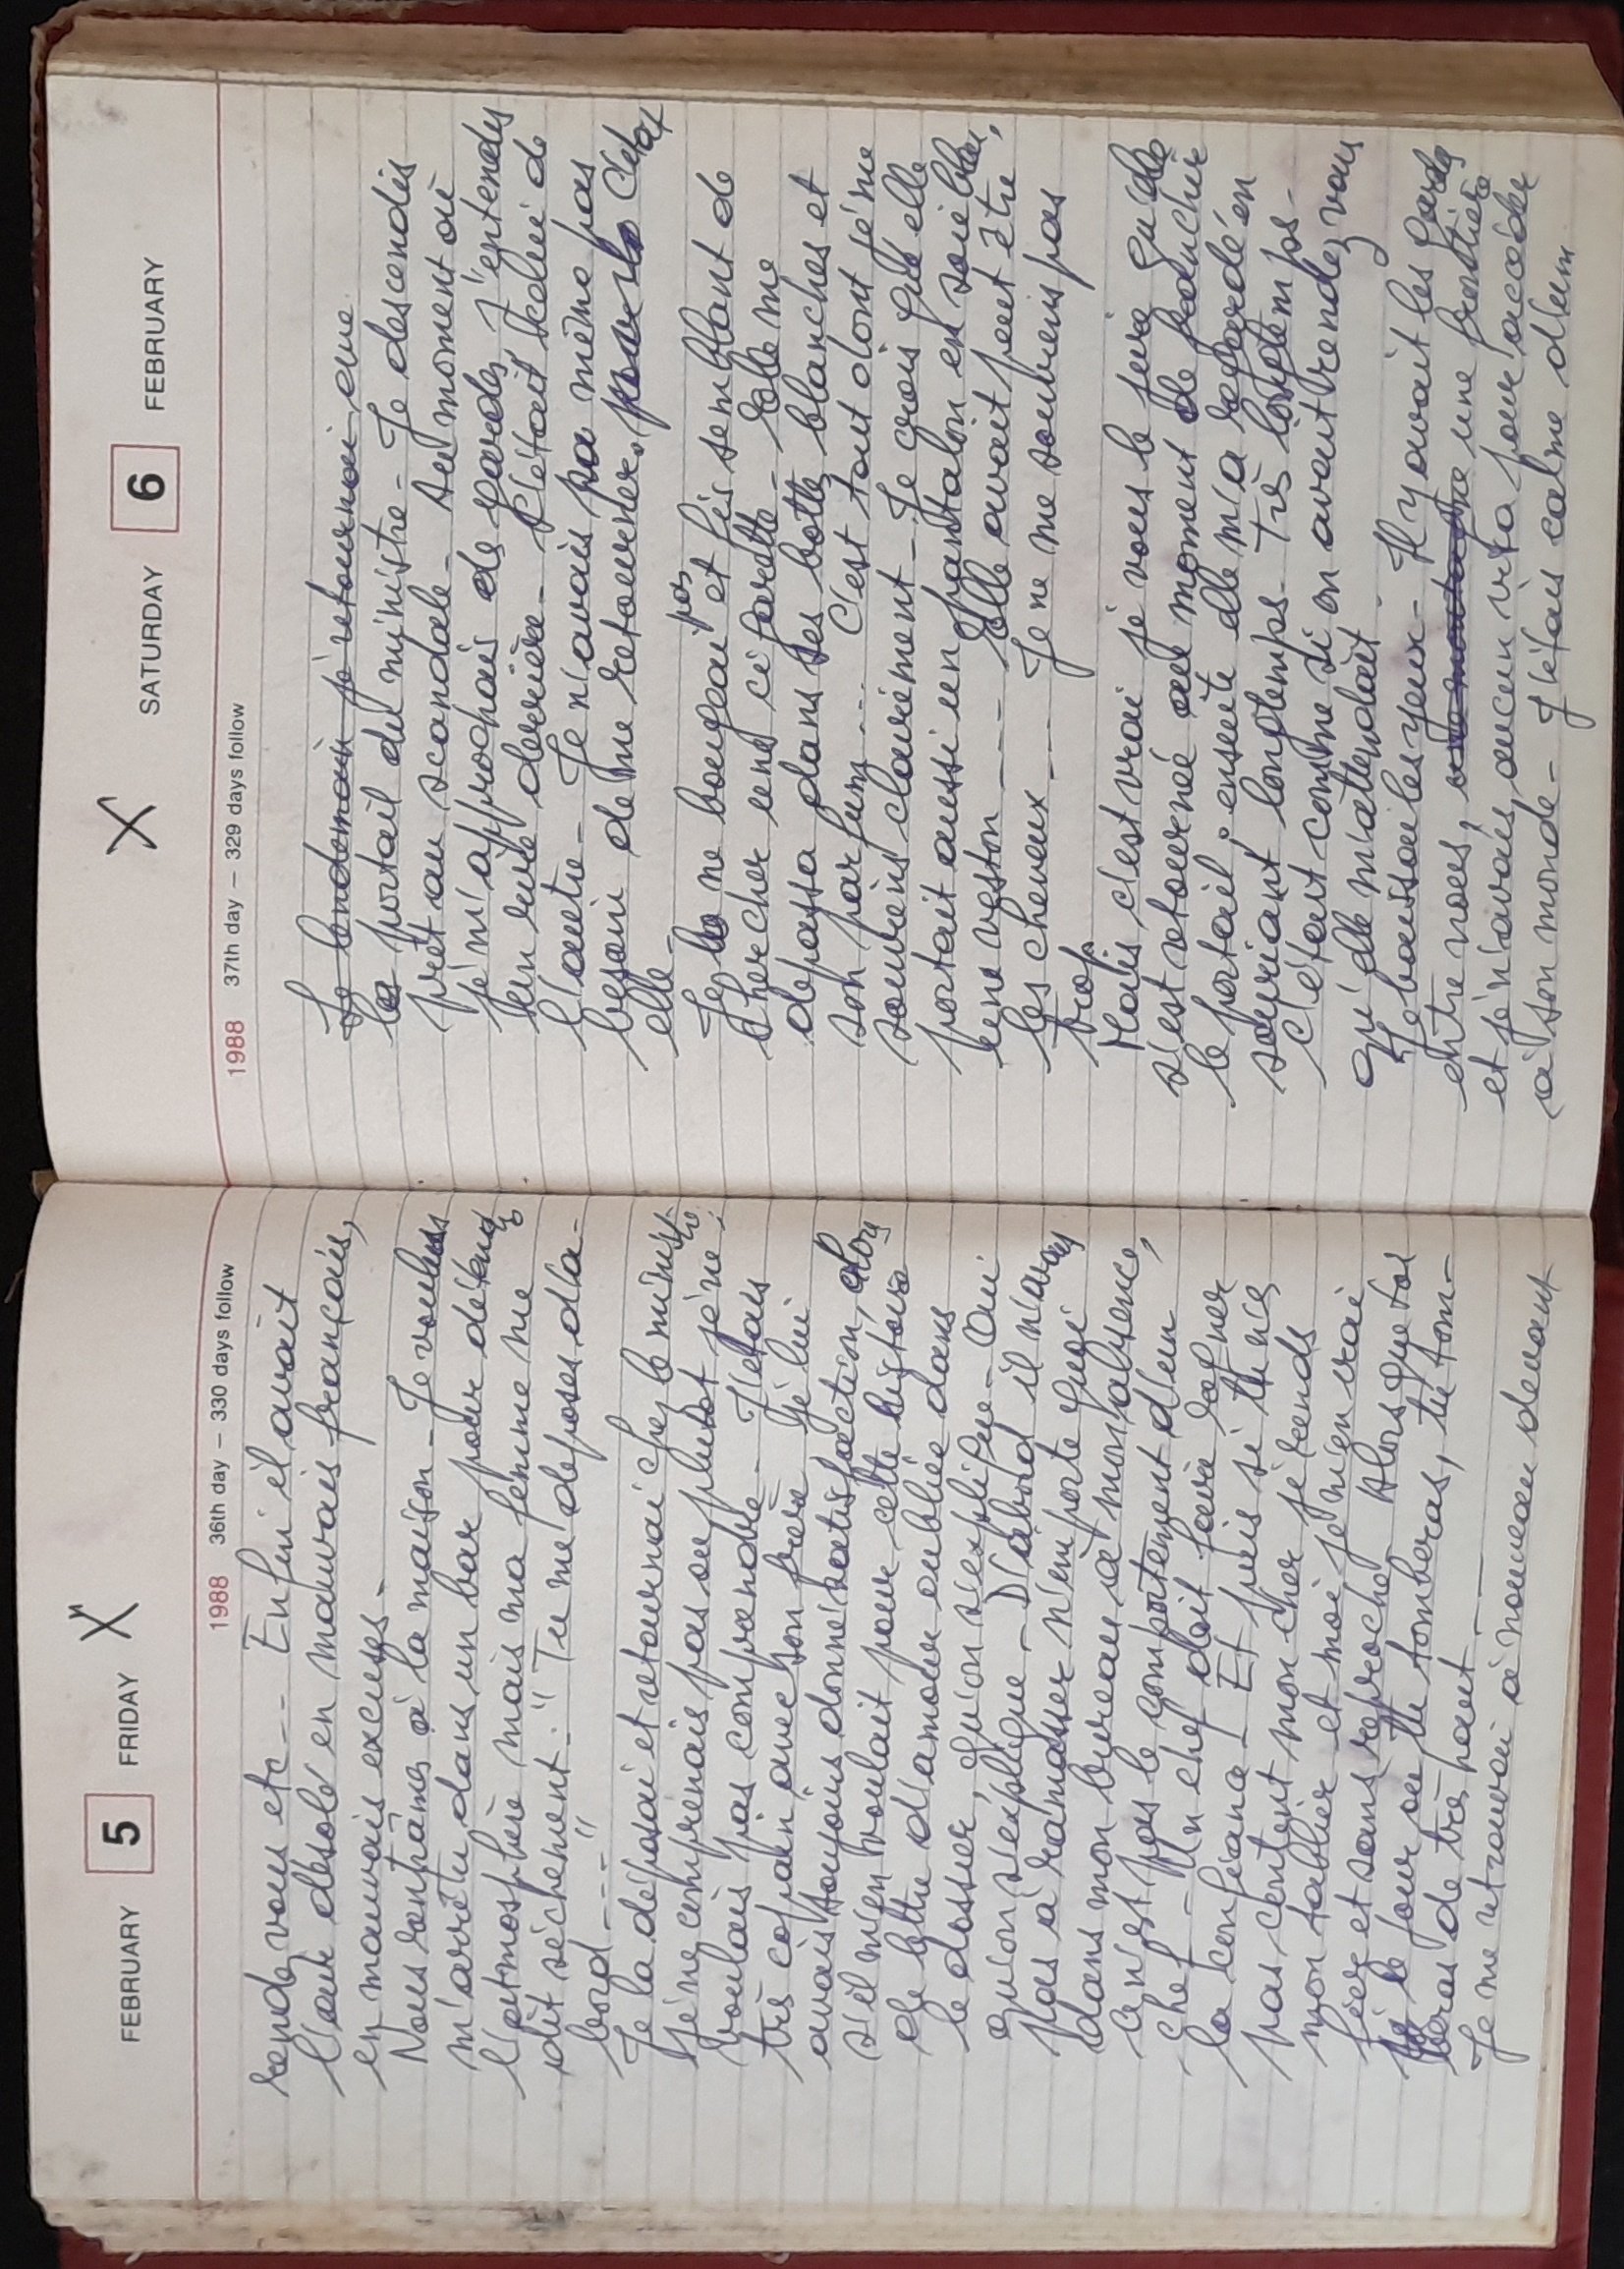 FEBRUARY 5 FRIDAY X
1988 36th day – 330 days follow
rendez vous etc-- Enfin il avait
l'air désolé en mauvais français,
en mauvais excuses-
Nous rentrâmes à la maison - Je voulus
m'arrêter dans un bar pour détendre
l'atmosphère mais ma femme me
dit séchement: " Tu me déposes d'a-
bord ---- "
Je la déposai et retournai chez le ministre
Je ne comprenais pas ou plutot je ne
voulais pas comprendre - J'étais
très copain avec son frère. Je lui
avais toujours donné satisfaction, alors
s'il m'en voulait pour cette histoire
de lettre d'amour oubliée dans
le dossier, qu'on s'explique - Oui
qu'on s'explique - D'abord il n'avait
pas à ramasser n'importe quoi
dans mon bureau à mon absence,
ce n'est pas le comportement d'un
chef - Un chef doit faire régner
la confiance - Et puis si tu n'es
pas content mon cher je rends
mon tablier et moi je m'en irai
fier et sans reproche Alors que toi
le jour ou tu tomberas, tu tom-
beras de très haut - - -
Je me retrouvai à nouveau devant
X SATURDAY 6 FEBRUARY
1988 37th day – 329 days follow
Le lendemain je retournai avec
le portail du ministre - Je descendis
prêt au scandale - Au moment où
je m'approchais des gardes j'entendis
un bruit derrière - C'était celui de
l'autre - Je n'avais même pas
besoin de me retourner, C'était
elle -
Je ne bougeai pas et fis semblant de
chercher une cigarette - Elle me
depassa dans ses bottes blanches et
son parfum ... C'est tout dont je me
souviens clairement - Je crois qu'elle
portait aussi un pantalon en soie bleu,
une veston ---- Elle avait peut être
les cheveux ---- Je ne me souviens pas
trop.
Mais c'est vrai je vous le jure qu'elle
s'est retournée au moment de franchir
le portail, ensuite elle m'a regardé en
souriant longtemps - Très longtemps -
C'était comme si on avait rendez vous
qu'elle m'attendait -
Je baissai les yeux - Il y avait les gardes
entre nous, une frontière
et je n'avais aucun visa pour accéder
à son monde - J'étais calme d'un